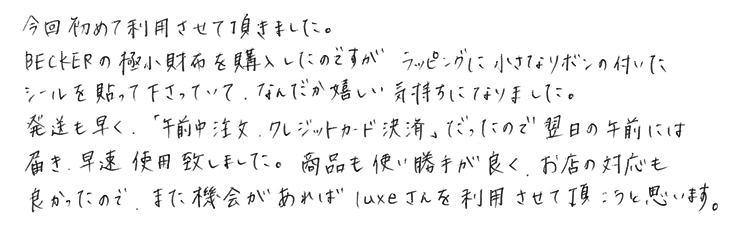 今回初めて利用させて頂きました。
BECKERの極小財布を購入したのですが ラッピングに小さなリボンの付いた
シールを貼って下さっていて、なんだか嬉しい気持ちになりました。
発送も早く、「午前中注文、クレジットカード決済」だったので翌日の午前には
届き、早速使用致しました。商品も使い勝手が良く、お店の対応も
良かったので、また機会があればluxeさんを利用させて頂こうと思います。